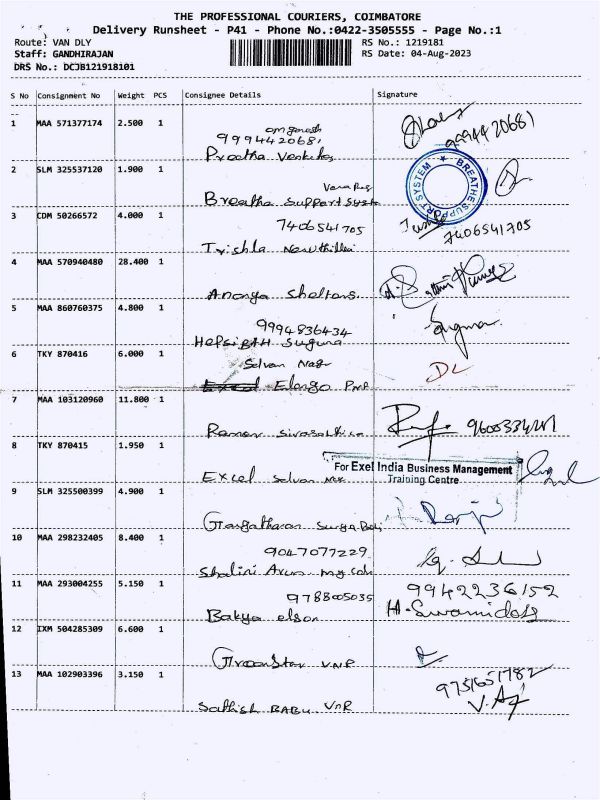 THE PROFESSIONAL COURIERS, COIMBATORE
Delivery Runsheet - P41 - Phone No.:0422-3505555 - Page No.:1
Route: VAN DLY
RS No.: 1219181
Staff: GANDHIRAJAN
RS Date: 04-Aug-2023
DRS No.: DCJB121918101
S No Consignment No Weight PCS Consignee Details Signature
1 MAA 571377174 2.500 1
omganesh
9994420681
9994420681
2 SLM 325537120 1.900 1
BREATHE SUPPORT SYSTEM
Breatha Support
3 CDM 50266572 4.000 1
7406541705
7406541705
Trishla
4 MAA 570940480 28.400 1
Ananya Sheltons
5 MAA 860760375 4.800 1
9994836434
Hepsibah Suguna
6 TKY 870416 6.000 1
Selvan Nagr
Elango
DL
7 MAA 103120960 11.800 1
9600334201
Raman
8 TKY 870415 1.950 1
For Exel India Business Management
Training Centre
Excel Selvan
9 SLM 325500399 4.900 1
Gangatharan Surya
10 MAA 298232405 8.400 1
9047077229
Shalini Arun
11 MAA 293004255 5.150 1
9942236152
9788005035
H. Swamidoss
Bakya elson
12 IXM 504285309 6.600 1
GreenStar VNR
13 MAA 102903396 3.150 1
9751651782
Sathish BABU VNR